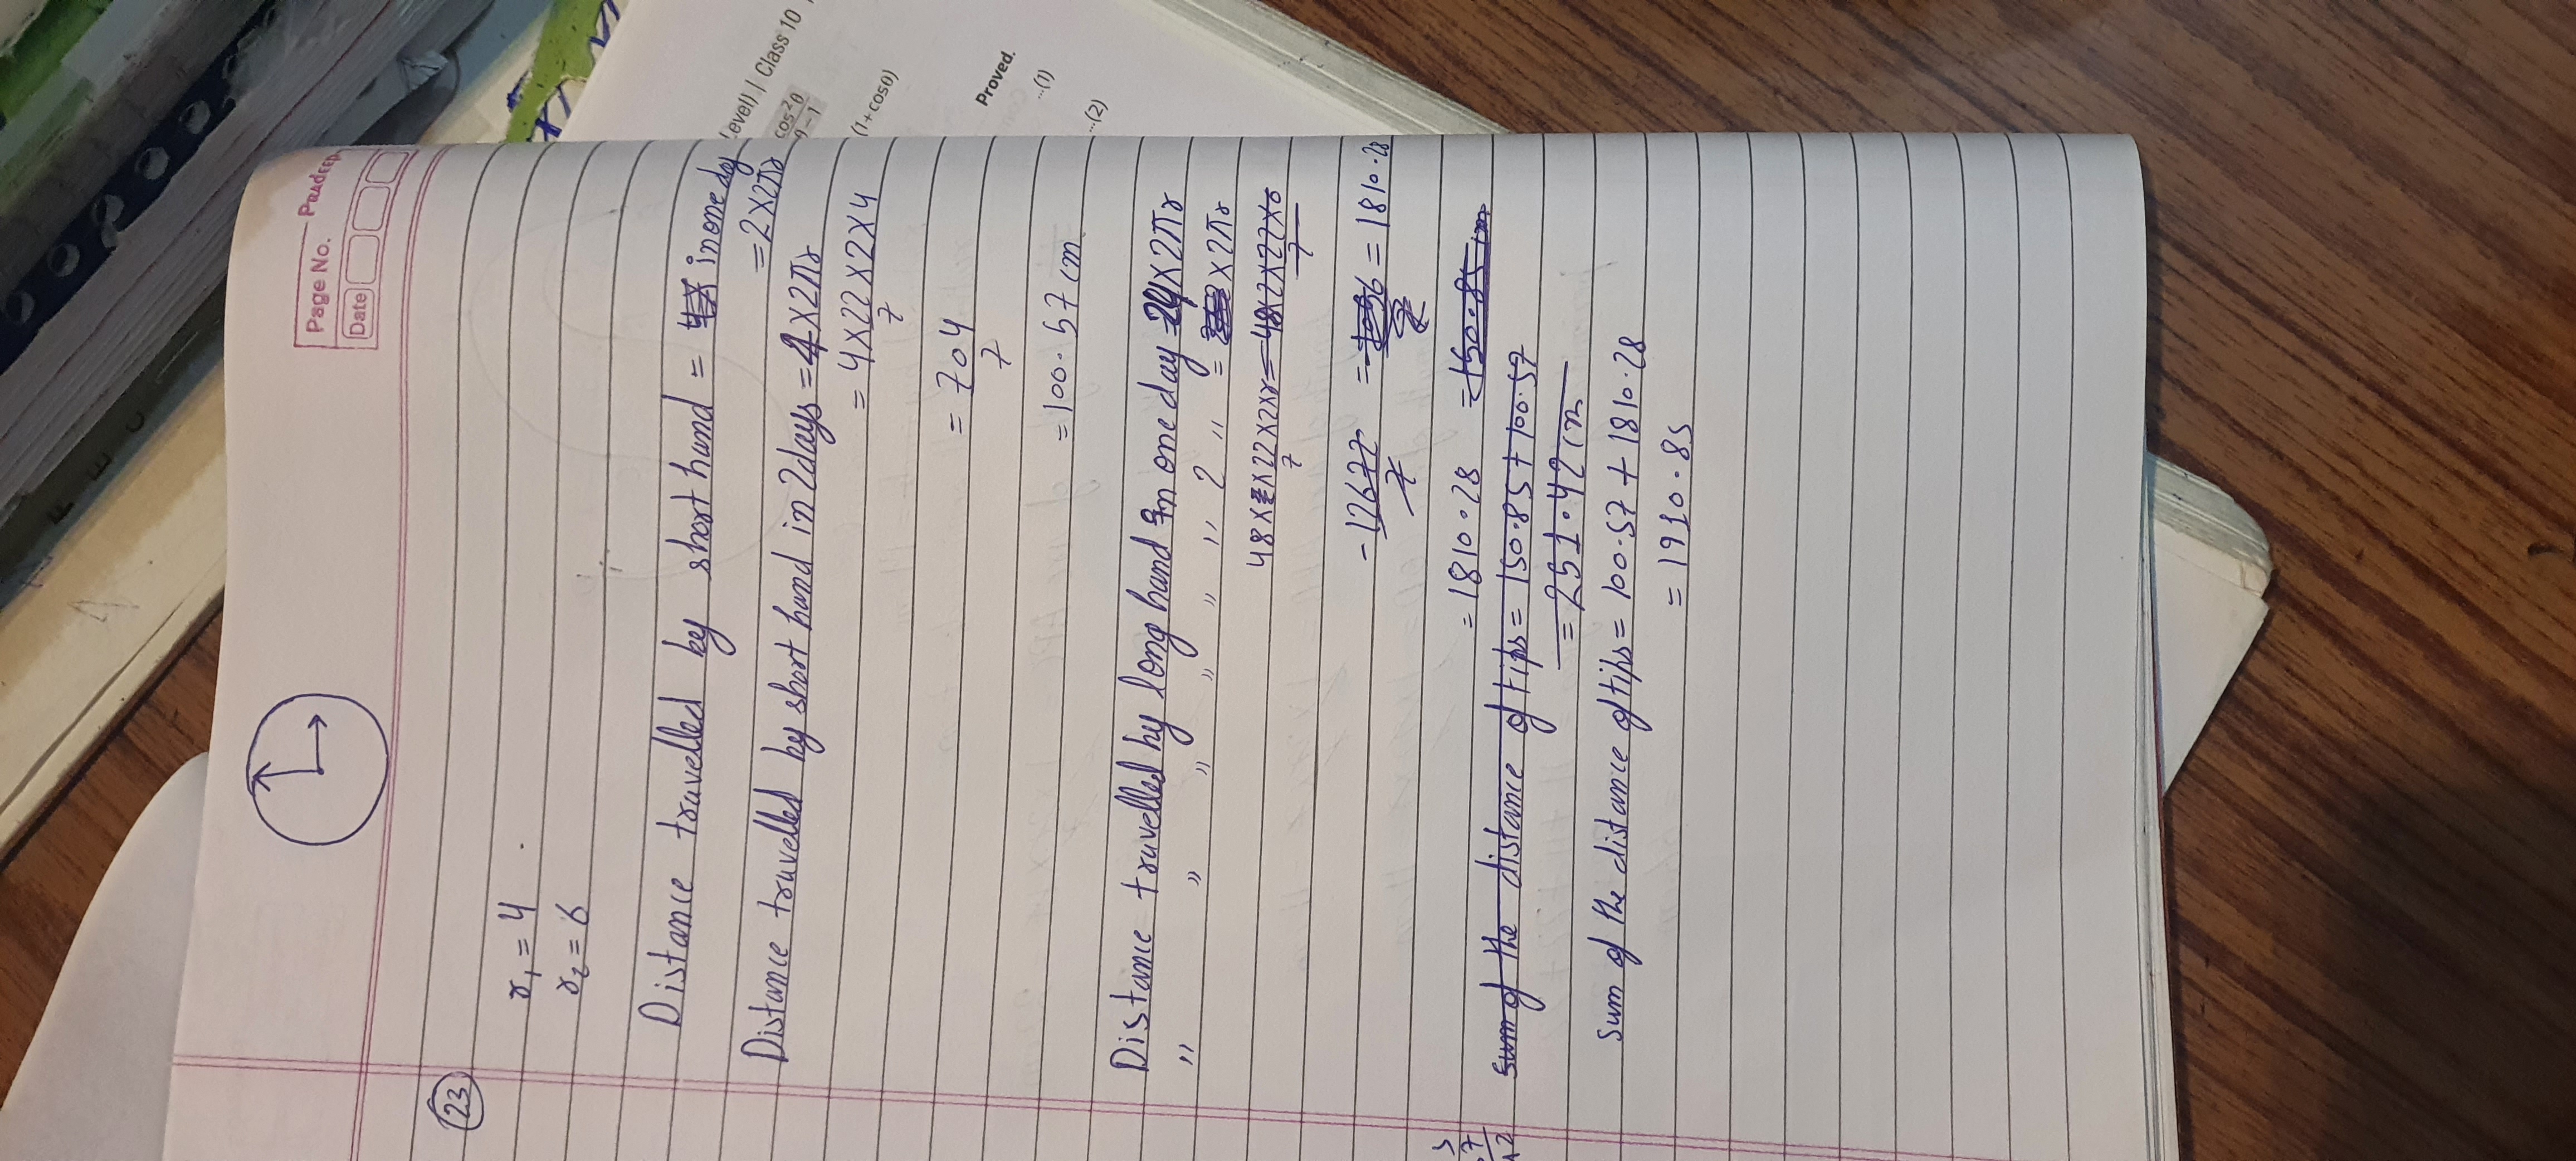 Page No. PRADEEP
Date
(23)
r₁ = 4
r₂ = 6
Distance travelled by short hand = in one day
= 2 × 2πr
Distance travelled by short hand in 2 days = 4 × 2πr
= 4 × 22/7 × 2 × 4
= 704/7
= 100.57 cm
Distance travelled by long hand in one day = 24 × 2πr
" " " " " " " 2 " = × 2πr
48 × 22/7 × 2 × r = 48 × 2 × 22/7 × 6
= 12672/7 = = 1810.28
= 1810.28 = 150.85 cm
Sum of the distance of tips = 150.85 + 100.57
= 251.42 cm
Sum of the distance of tips = 100.57 + 1810.28
= 1910.85
Level) | Class 10
cos²θ
θ-1
(1+cosθ)
Proved.
...(1)
...(2)